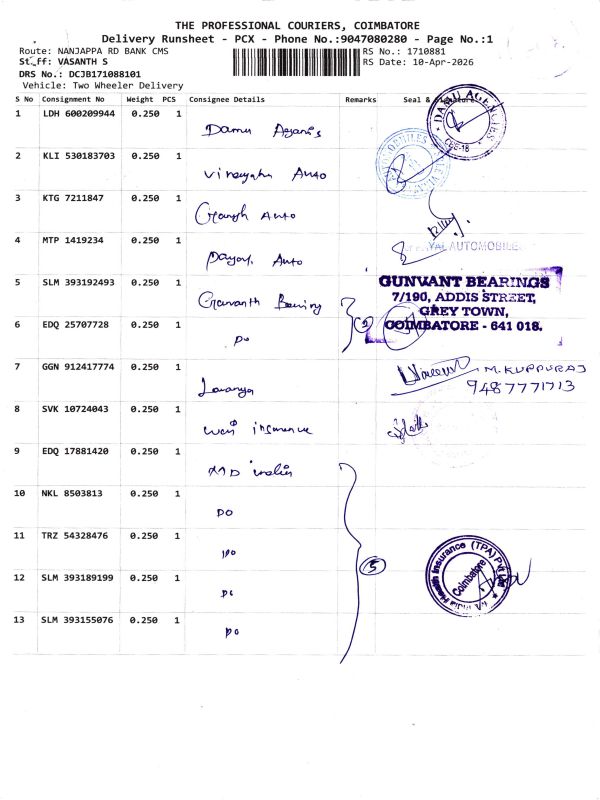 THE PROFESSIONAL COURIERS, COIMBATORE
Delivery Runsheet - PCX - Phone No.:9047080280 - Page No.:1
Route: NANJAPPA RD BANK CMS
RS No.: 1710881
Staff: VASANTH S
RS Date: 10-Apr-2026
DRS No.: DCJB171088101
Vehicle: Two Wheeler Delivery
S No Consignment No Weight PCS Consignee Details Remarks Seal & Signature
1 LDH 600209944 0.250 1
DAMU AGENCIES
CBE-18
2 KLI 530183703 0.250 1 Vinayaha Auto
3 KTG 7211847 0.250 1 Ganesh Auto
4 MTP 1419234 0.250 1 Auto
YAL AUTOMOBILE
5 SLM 393192493 0.250 1
GUNVANT BEARINGS
7/190, ADDIS STREET,
GREY TOWN,
COIMBATORE - 641 018.
6 EDQ 25707728 0.250 1 Do
2
7 GGN 912417774 0.250 1 Lavanya
M. KUPPURAJ
9487771713
8 SVK 10724043 0.250 1 insurance
9 EDQ 17881420 0.250 1 MD india
10 NKL 8503813 0.250 1 DO
11 TRZ 54328476 0.250 1 DO
5
Health Insurance (TPA) Pvt Ltd
Coimbatore
12 SLM 393189199 0.250 1 Do
13 SLM 393155076 0.250 1 DO